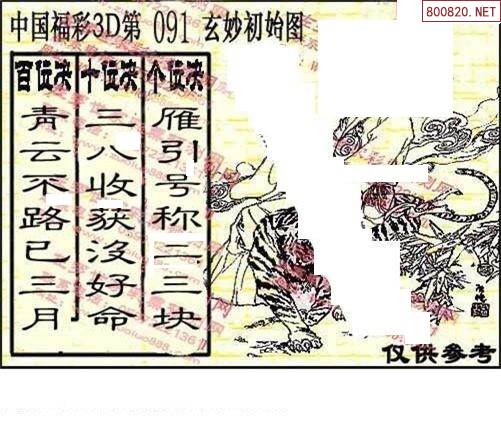 800820.NET
中国福彩3D第 091 玄妙初始图
百位决 十位决 个位决
青云不路已三月
三八收获没好命
雁引号称二三块
仅供参考